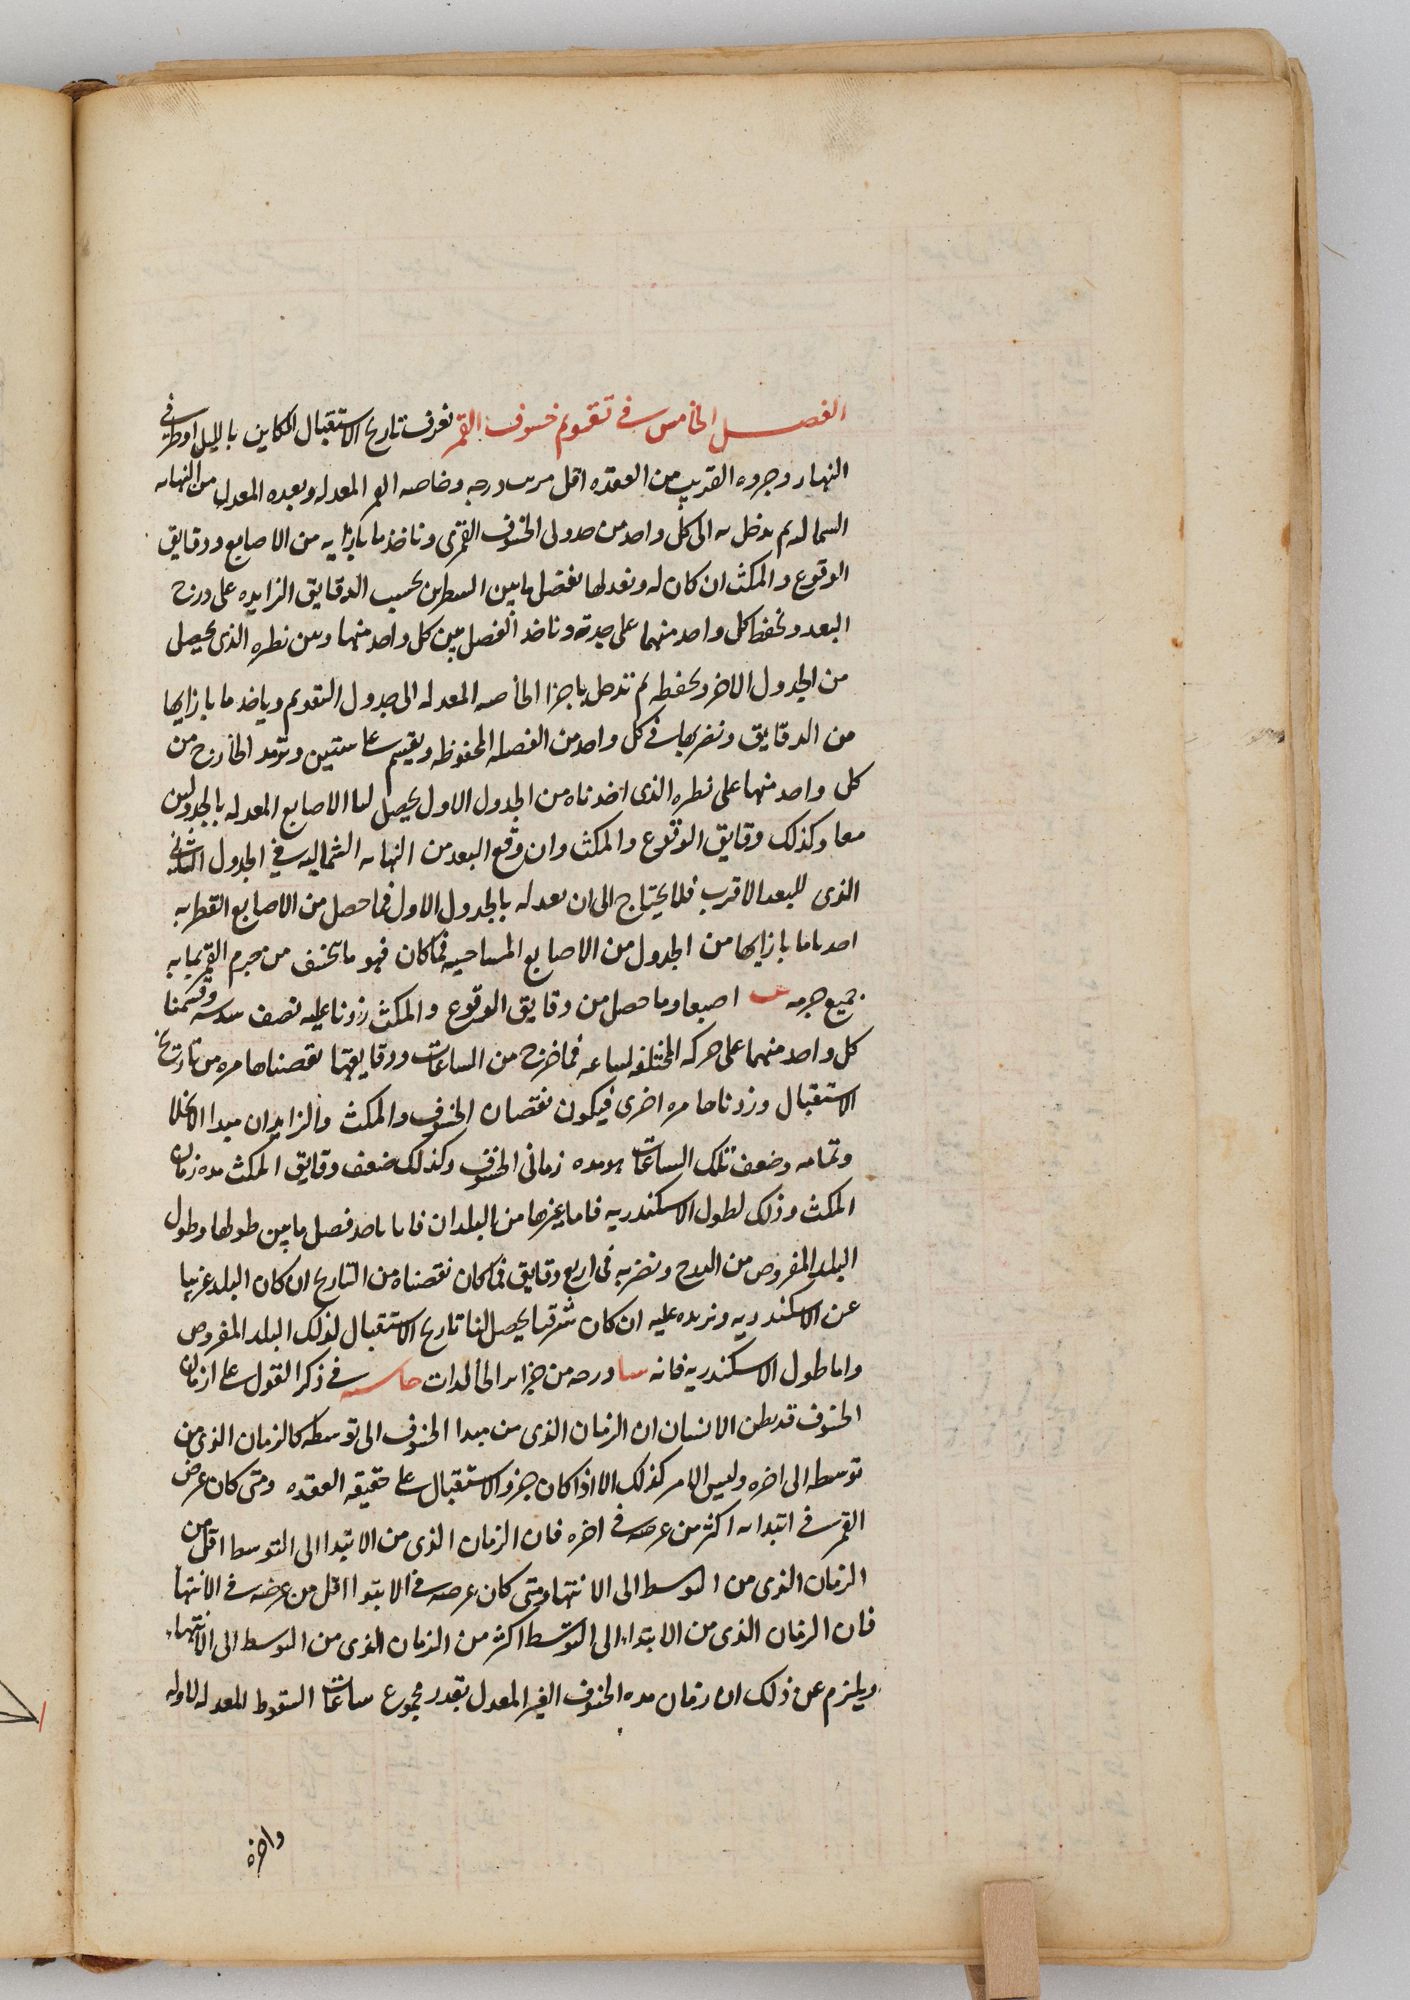 الفصل الخامس في تقويم خسوف القمر نعرف تاريخ الاستقبال الكاين بالليل او طرفي
النهار وجزوه القريب من العقده اقل من درجه وخاصه القمر المعدله وبعده المعدل من النهايه
الشماليه ثم ندخل به الى كل واحد من جدولى الخسوف القمرى وناخذ ما بازايه من الاصابع ودقايق
الوقوع والمكث ان كان له ونعدلها بفضل ما بين السطرين بحسب الدقايق الزايده على درج
البعد ونحفظ كل واحد منهما على حدة وناخذ الفصل بين كل واحد منها وبين نظره الذى يحصل
من الجدول الاخر ونحفظه ثم ندخل باجزا الخاصه المعدله الى جدول التقويم وياخذ ما بازايها
من الدقايق ونضربها في كل واحد من الفصله المحفوظه ويقسم على ستين ونزيد الخارج من
كل واحد منها على نظره الذى اخذناه من الجدول الاول يحصل لنا الاصابع المعدله بالجدولين
معا وكذلك دقايق الوقوع والمكث وان وقع البعد من النهايه الشماليه في الجدول الثانى
الذى للبعد الاقرب فلا يحتاج الى ان نعدله بالجدول الاول فما حصل من الاصابع القطريه
اخذنا ما بازايها من الجدول من الاصابع المساحيه فما كان فهو ما ينخسف من جرم القمر بما به
جميع جرمه يب اصبعا وما حصل من دقايق الوقوع والمكث زدنا عليه نصف سدسه وقسمنا
كل واحد منهما على حركه المختلفه لساعه فما خرج من الساعات ودقايقها نقصناها مره من تاريخ
الاستقبال وزدناها مره اخرى فيكون نقصان الخسوف والمكث والزايدان مبدا الانجلا
وتمامه وضعف تلك الساعات هو مده زمانى الخسوف وكذلك ضعف دقايق المكث مده زمان
المكث وذلك لطول الاسكندريه فاما غيرها من البلدان فانا ناخذ فصل ما بين طولها وطول
البلد المفروض من الدرج ونضربه فى اربع دقايق فما كان نقصناه من التاريخ ان كان البلد غربيا
عن الاسكندريه ونزيده عليه ان كان شرقيا يحصل لنا تاريخ الاستقبال لذلك البلد المفروض
واما طول الاسكندريه فانه سا درجه من جزاير الخالدات حاسه في ذكر القول على ازمان
الخسوف قد يظن الانسان ان الزمان الذى من مبدا الخسوف الى توسطه كالزمان الذى من
توسطه الى اخره وليس الامر كذلك الا اذا كان جزو الاستقبال على حقيقه العقده ومتى كان عرض
القمر في ابتدايه اكثر من عرضه في اخره فان الزمان الذى من الابتدا الى التوسط اقل من
الزمان الذى من التوسط الى الانتها ومتى كان عرضه في الابتدا اقل من عرضه في الانتها
فان الزمان الذى من الابتداء الى التوسط اكثر من الزمان الذى من التوسط الى الانتهاء
ويلزم عن ذلك ان زمان مده الخسوف الغير المعدل بقدر مجموع ساعات السقوط المعدله لاوله
واخره